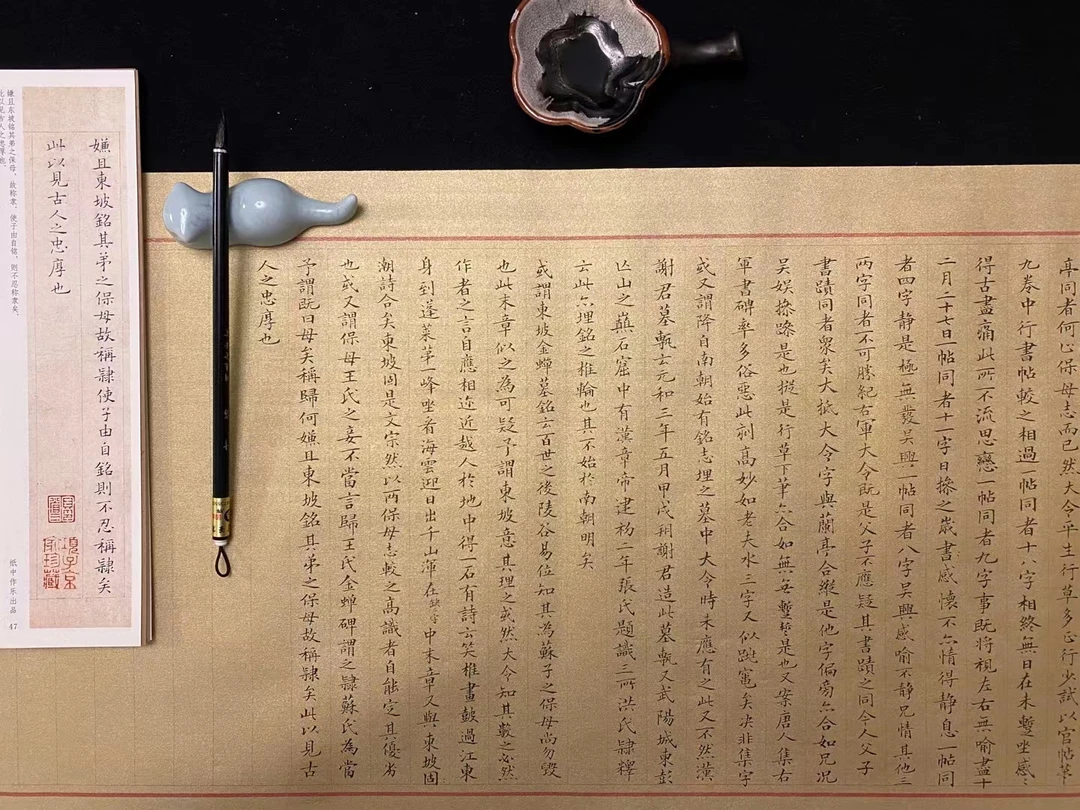 亭同者何也保母志而已然大令平生行草多正行少試以官帖第
九卷中行書帖較之相過一帖同者十八字相終無日在未蹔坐感〻
得古盡痛此所不流思戀一帖同者九字事既將視左右無喻盡十
二月二十七日一帖同者十一字日操之歲書感懷不亦情得静息一帖同
者四字静是極無發吳興一帖同者八字吳興感喻不静兄情其他三
両字同者不可勝紀右軍大令既是父子不應疑其書蹟之同今人父子
書蹟同者衆矣大抵大令字與蘭亭合縱是他字偏旁亦合如兄况
吴娱操躁是也挺是行草下筆亦合如無
是也又案唐人集右
軍書碑率多俗惡此刻髙妙如老夫水三字又似跳竃矣决非集字
或又謂降自南朝始有銘志埋之墓中大令時未應有之此又不然漢
謝君墓甎云元和三年五月甲戌朔謝君造此墓甎又武陽城東彭
亾山之巔石窟中有漢章帝建初二年張氏題識三所洪氏隸釋
云此亦埋銘之椎輪也其不始於南朝明矣
或謂東坡金蟬墓銘云百世之後陵谷易位知其為蘇子之保母尚勿毁
也此末章似之為可疑予謂東坡意其理之或然大令知其數之必然
作者之言自應相迩近越人於地中得一石有詩云笑椎畫皷過江東
身到蓬莱苐一峰坐看海雲迎日出千山渾在
中末章又與東坡固
潮詩合矣東坡固是文宗然以两保母志較之髙識者自能定其優劣
也或又謂保母王氏之妾不當言歸王氏金蟬碑謂之隸蘇氏為當
予謂既曰母矣稱歸何嫌且東坡銘其弟之保母故稱隸矣此以見古
人之忠厚也
嫌且東坡銘其弟之保母故稱隸使子由自銘則不忍稱隸矣
此以見古人之忠厚也
項子京
家珍藏
嫌且东坡铭其弟之保母，故称隶，使子由自铭，则不忍称隶矣，
此以见古人之忠厚也。
纸中作乐出品 47